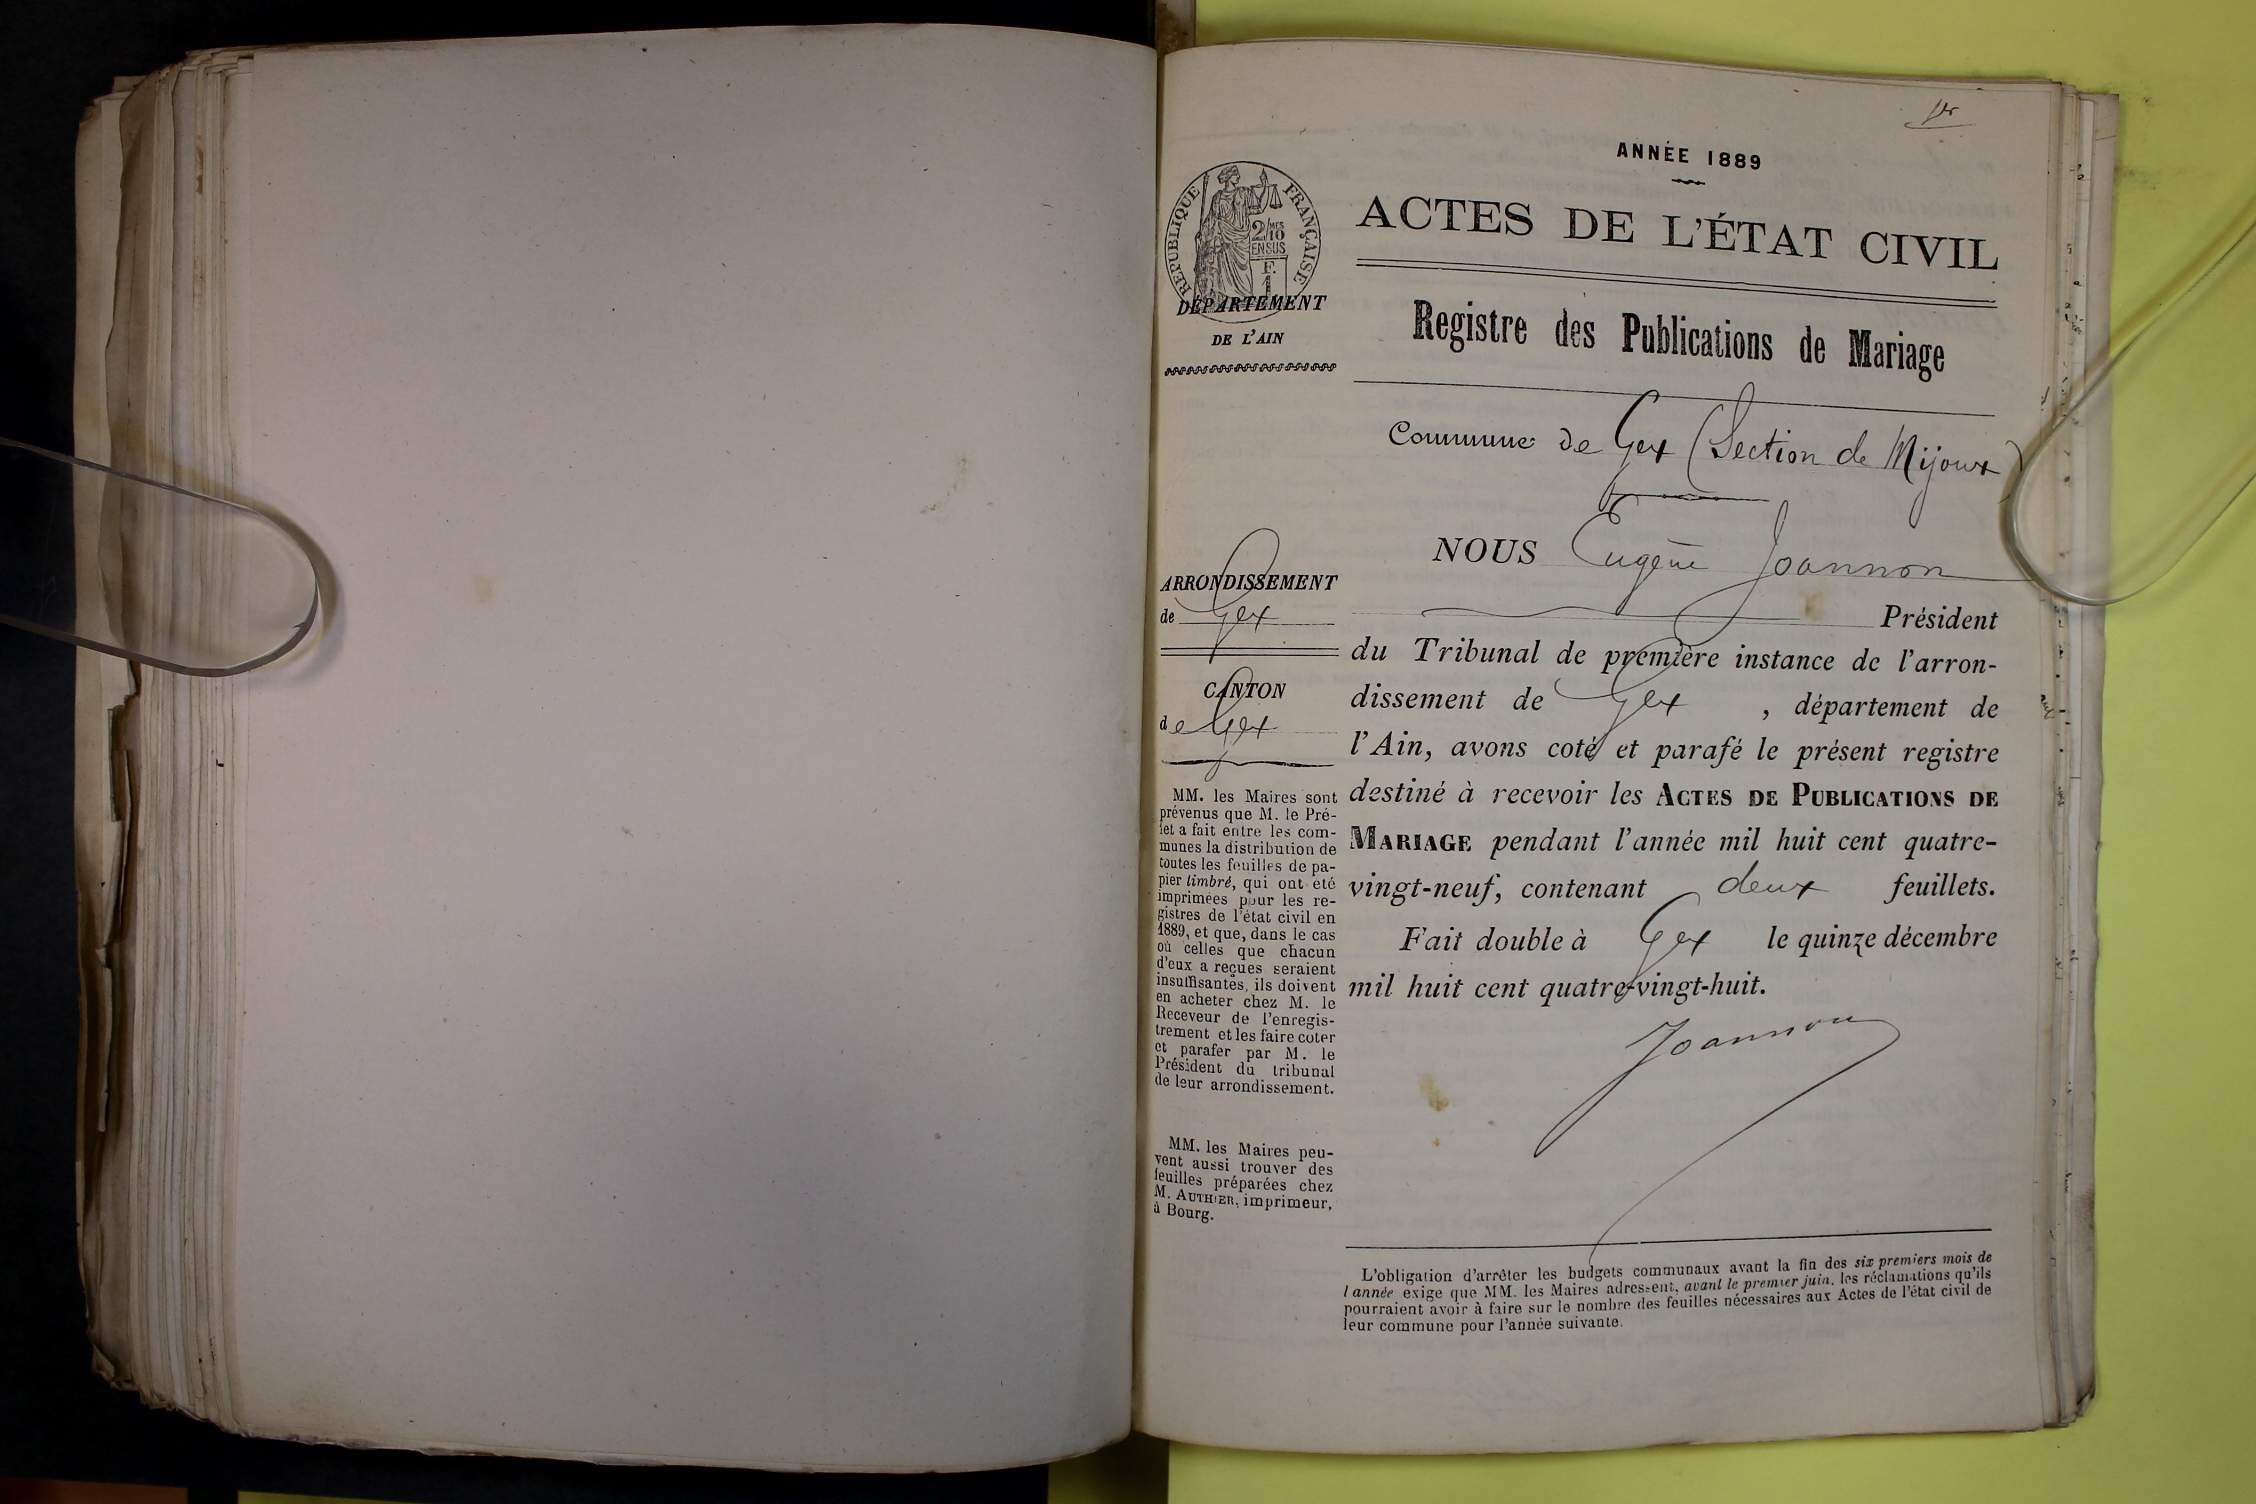 1er
ANNÉE 1889
ACTES DE L'ÉTAT CIVIL
Registre des Publications de Mariage
Commune de Gex (Section de Mijoux)
NOUS Eugène Joannon
Président
du Tribunal de première instance de l'arron-
dissement de Gex , département de
l'Ain, avons coté et parafé le présent registre
destiné à recevoir les ACTES DE PUBLICATIONS DE
MARIAGE pendant l'année mil huit cent quatre-
vingt-neuf, contenant deux feuillets.
Fait double à Gex le quinze décembre
mil huit cent quatre-vingt-huit.
Joannon
L'obligation d'arrêter les budgets communaux avant la fin des six premiers mois de
l'année exige que MM. les Maires adressent, avant le premier juin, les réclamations qu'ils
pourraient avoir à faire sur le nombre des feuilles nécessaires aux Actes de l'état civil de
leur commune pour l'année suivante.
RÉPUBLIQUE FRANÇAISE
2/10 MES
EN SUS
F.
1
DÉPARTEMENT
DE L'AIN
ARRONDISSEMENT
de Gex
CANTON
de Gex
MM. les Maires sont
prévenus que M. le Pré-
fet a fait entre les com-
munes la distribution de
toutes les feuilles de pa-
pier timbré, qui ont été
imprimées pour les re-
gistres de l'état civil en
1889, et que, dans le cas
où celles que chacun
d'eux a reçues seraient
insuffisantes, ils doivent
en acheter chez M. le
Receveur de l'enregis-
trement et les faire coter
et parafer par M. le
Président du tribunal
de leur arrondissement.
MM. les Maires peu-
vent aussi trouver des
feuilles préparées chez
M. AUTHIER, imprimeur,
à Bourg.